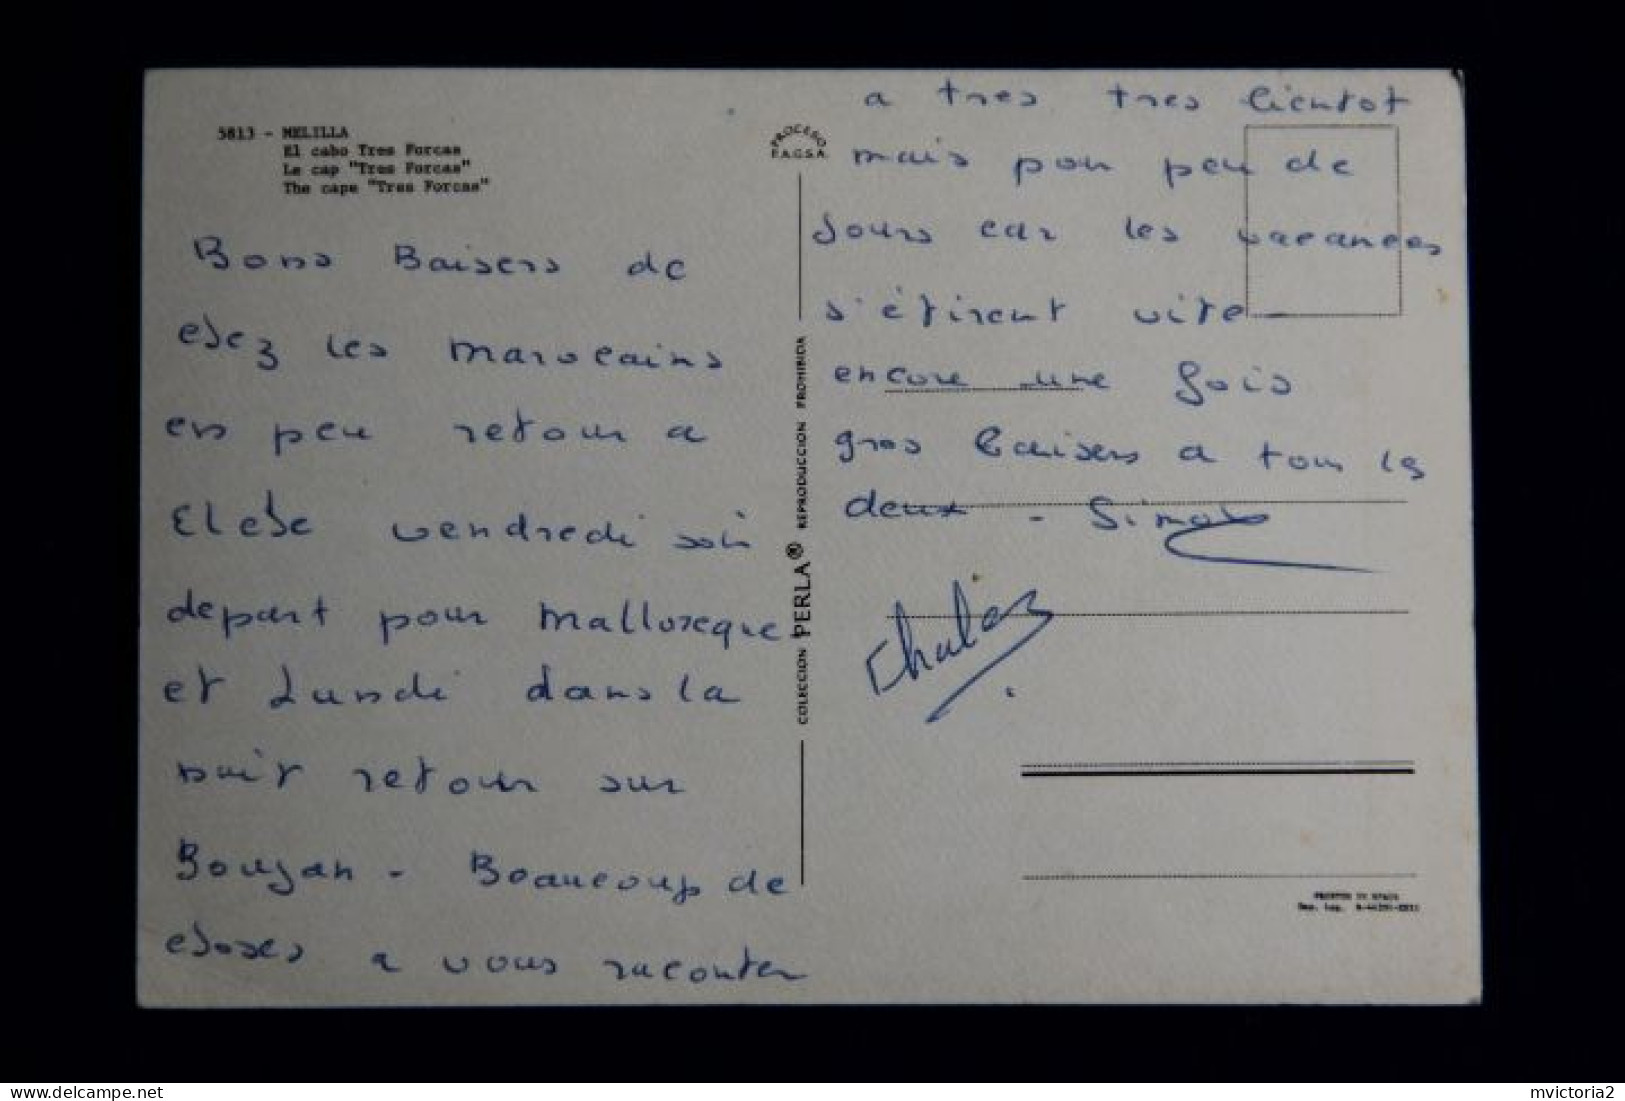 5813 - MELILLA
El cabo Tres Forcas
Le cap "Tres Forcas"
The cape "Tres Forcas"
Bons Baisers de
chez les marocains
en peu retour a
vendredi soir
depart pour Malloreque
et Lundi dans la
nuit retour sur
Boujan - Beaucoup de
choses a vous raconter
PROCESO
F.A.G.S.A.
COLECCION PERLA® REPRODUCCION PROHIBIDA
a tres tres bientot
mais pour peu de
Jours car les vacances
s'étirent vite -
encore une fois
gros baisers a tous les
deux - Simon
PRINTED IN SPAIN
Dep. Leg.
delcampe.net
mvictoria2